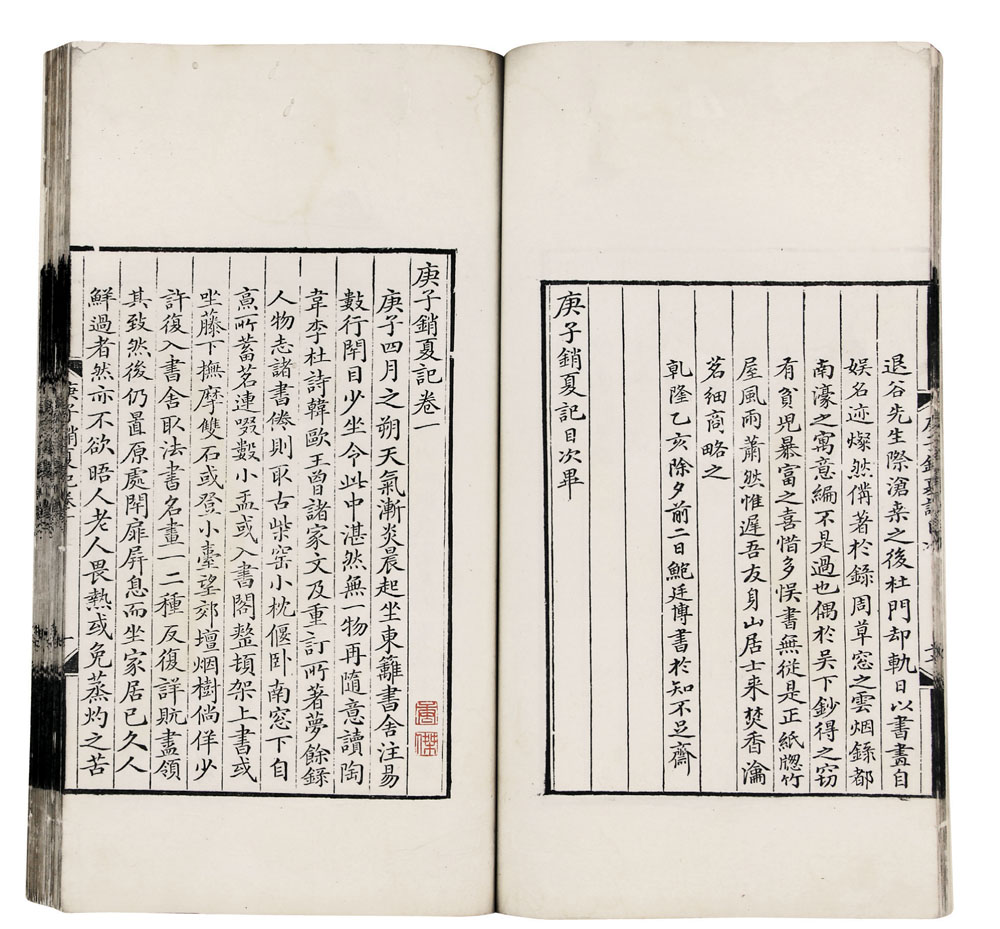 退谷先生際滄桑之後杜門却軌日以書畫自
娱名迹燦然俻著於錄周草窓之雲烟錄都
南濠之寓意編不是過也偶於吴下鈔得之窃
有貧児暴富之喜惜多悮書無從是正紙牕竹
屋風雨蕭然惟遲吾友身山居士来焚香瀹
茗細商略之
乾隆乙亥除夕前二日鮑廷博書於知不足齋
庚子銷夏記目次畢
庚子銷夏記卷一
庚子四月之朔天氣漸炎晨起坐東籬書舍注易
數行閉目少坐令此中湛然無一物再隨意讀陶
韋李杜詩韓歐王曾諸家文及重訂所著夢餘錄
人物志諸書倦則取古柴窑小枕偃卧南窓下自
烹所蓄茗連啜數小盂或入書閣整頓架上書或
坐藤下撫摩雙石或登小臺望郊壇烟樹倘佯少
許復入書舍取法書名畫一二種反復詳玩盡領
其致然後仍置原處閉扉屏息而坐家居已久人
鮮過者然亦不欲晤人老人畏熱或免蒸灼之苦
庚子銷夏記卷一